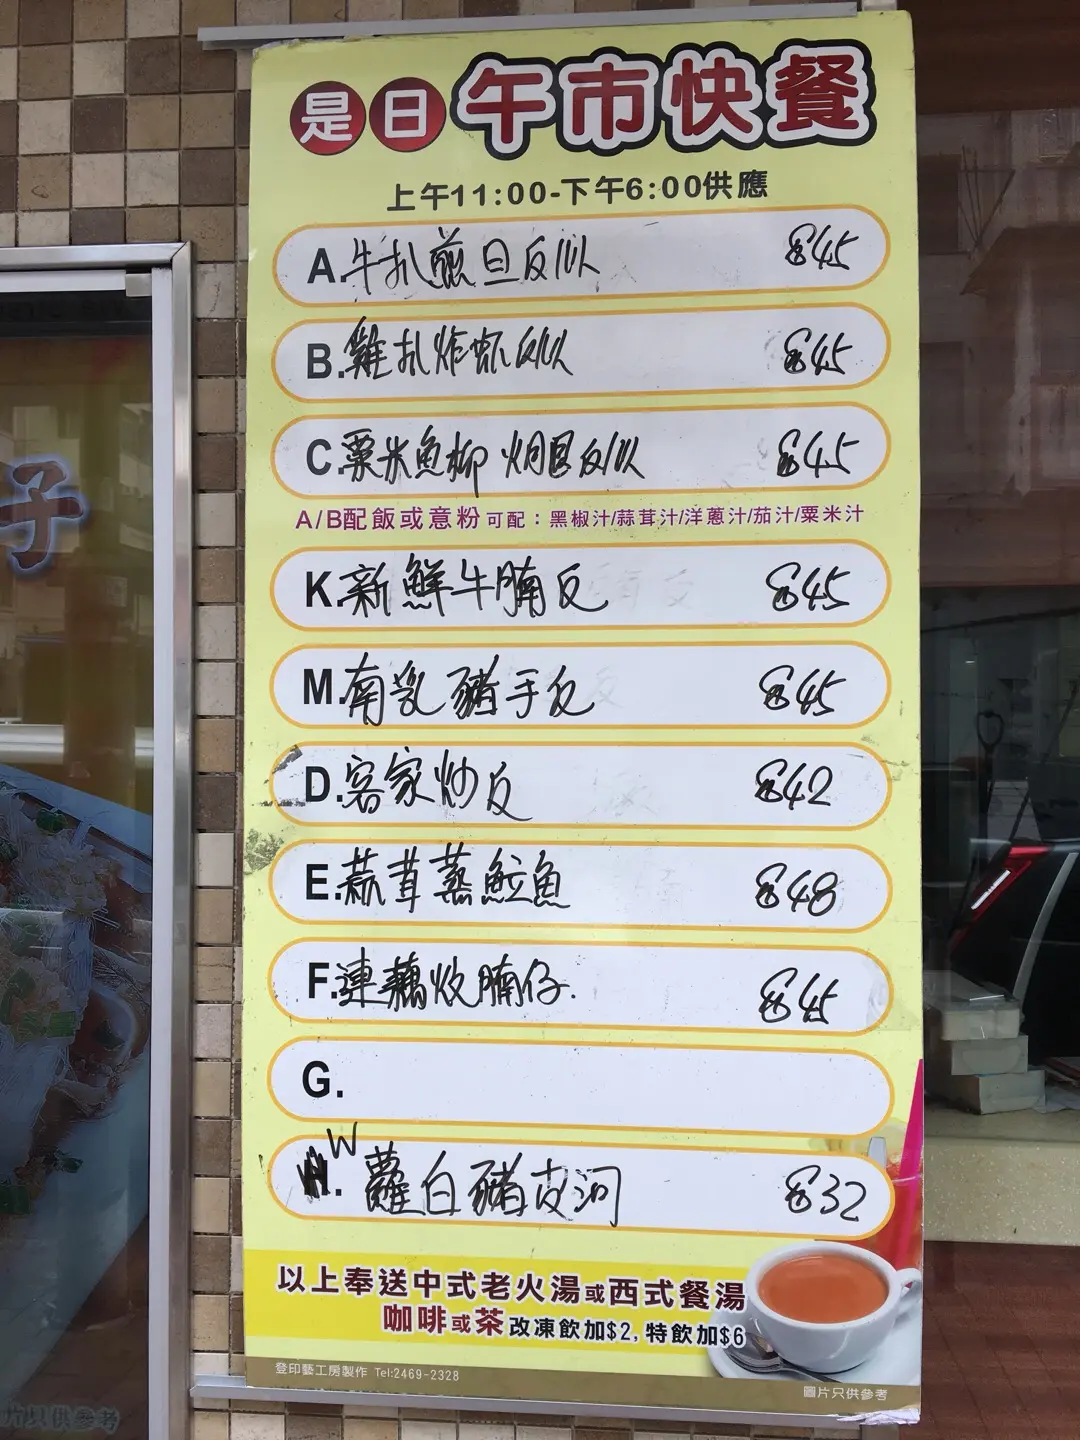 是日午市快餐
上午11:00-下午6:00供應
A.牛扒煎旦反 $45
B.雞扒炸虾反 $45
C粟米魚柳 $45
A/B配飯或意粉可配：黑椒汁/蒜茸汁/洋蔥汁/茄汁/粟米汁
K.新鮮牛腩反 $45
M.南乳豬手反 $45
D.客家炒反 $42
E.蒜茸蒸魚 $48
F.連藕炆腩仔. $45
G.
W 蘿白豬皮河 $32
以上奉送中式老火湯或西式餐湯
咖啡或茶改凍飲加$2,特飲加$6
登印藝工房製作 Tel:2469-2328
圖片只供參考
子
片只供參考